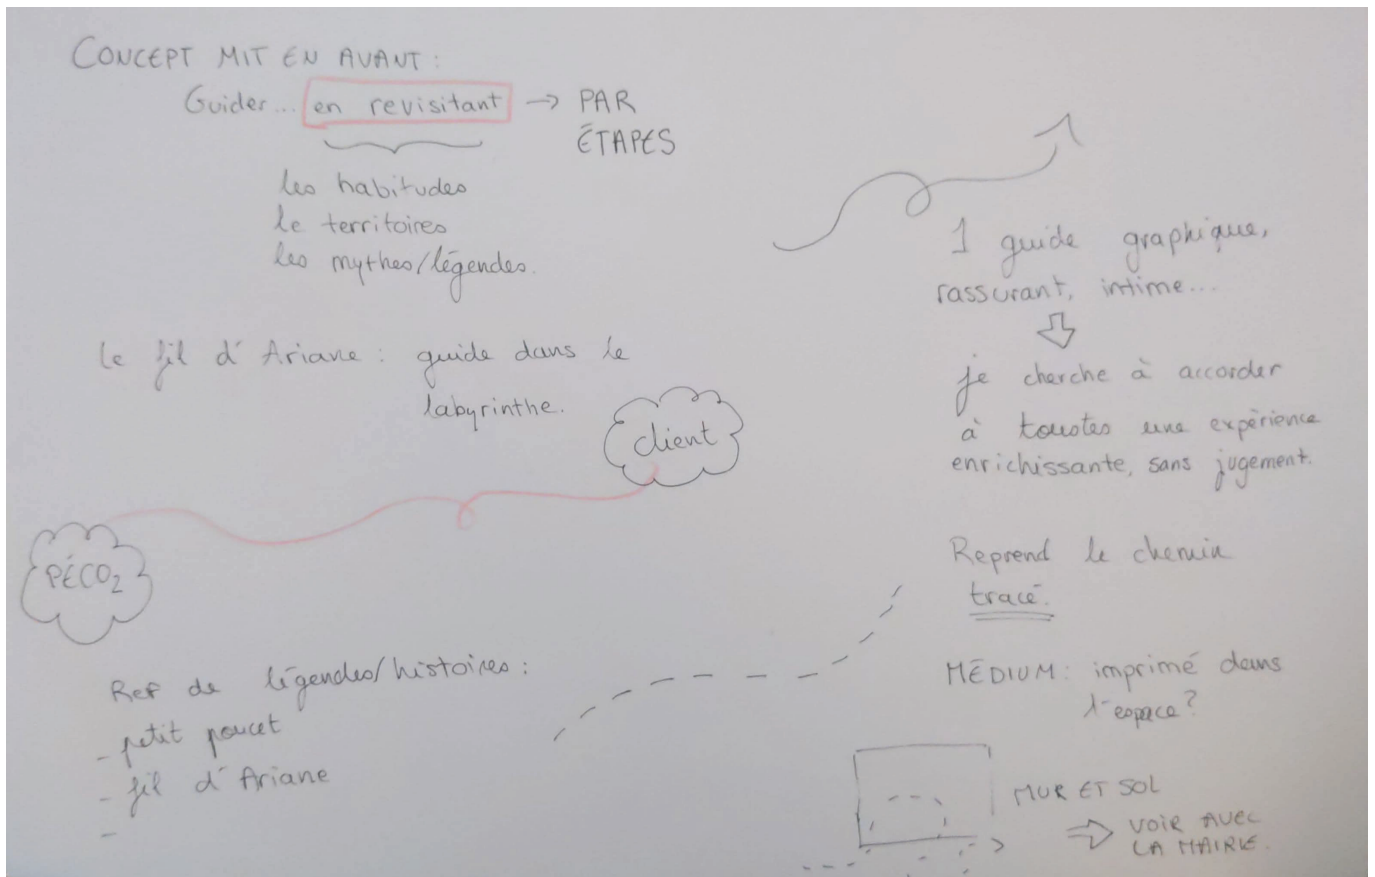 CONCEPT MIT EN AVANT :
Guider... en revisitant → PAR
ÉTAPES
les habitudes
le territoires
les mythes/légendes.
le fil d'Ariane : guide dans le
labyrinthe.
client
PÉCO₂
Ref de légendes/histoires :
- petit poucet
- fil d'Ariane
-
1 guide graphique,
rassurant, intime...
je cherche à accorder
à toustes une expérience
enrichissante, sans jugement.
Reprend le chemin
tracé.
MÉDIUM : imprimé dans
l'espace ?
MUR ET SOL
⇒ VOIR AVEC
LA MAIRIE.